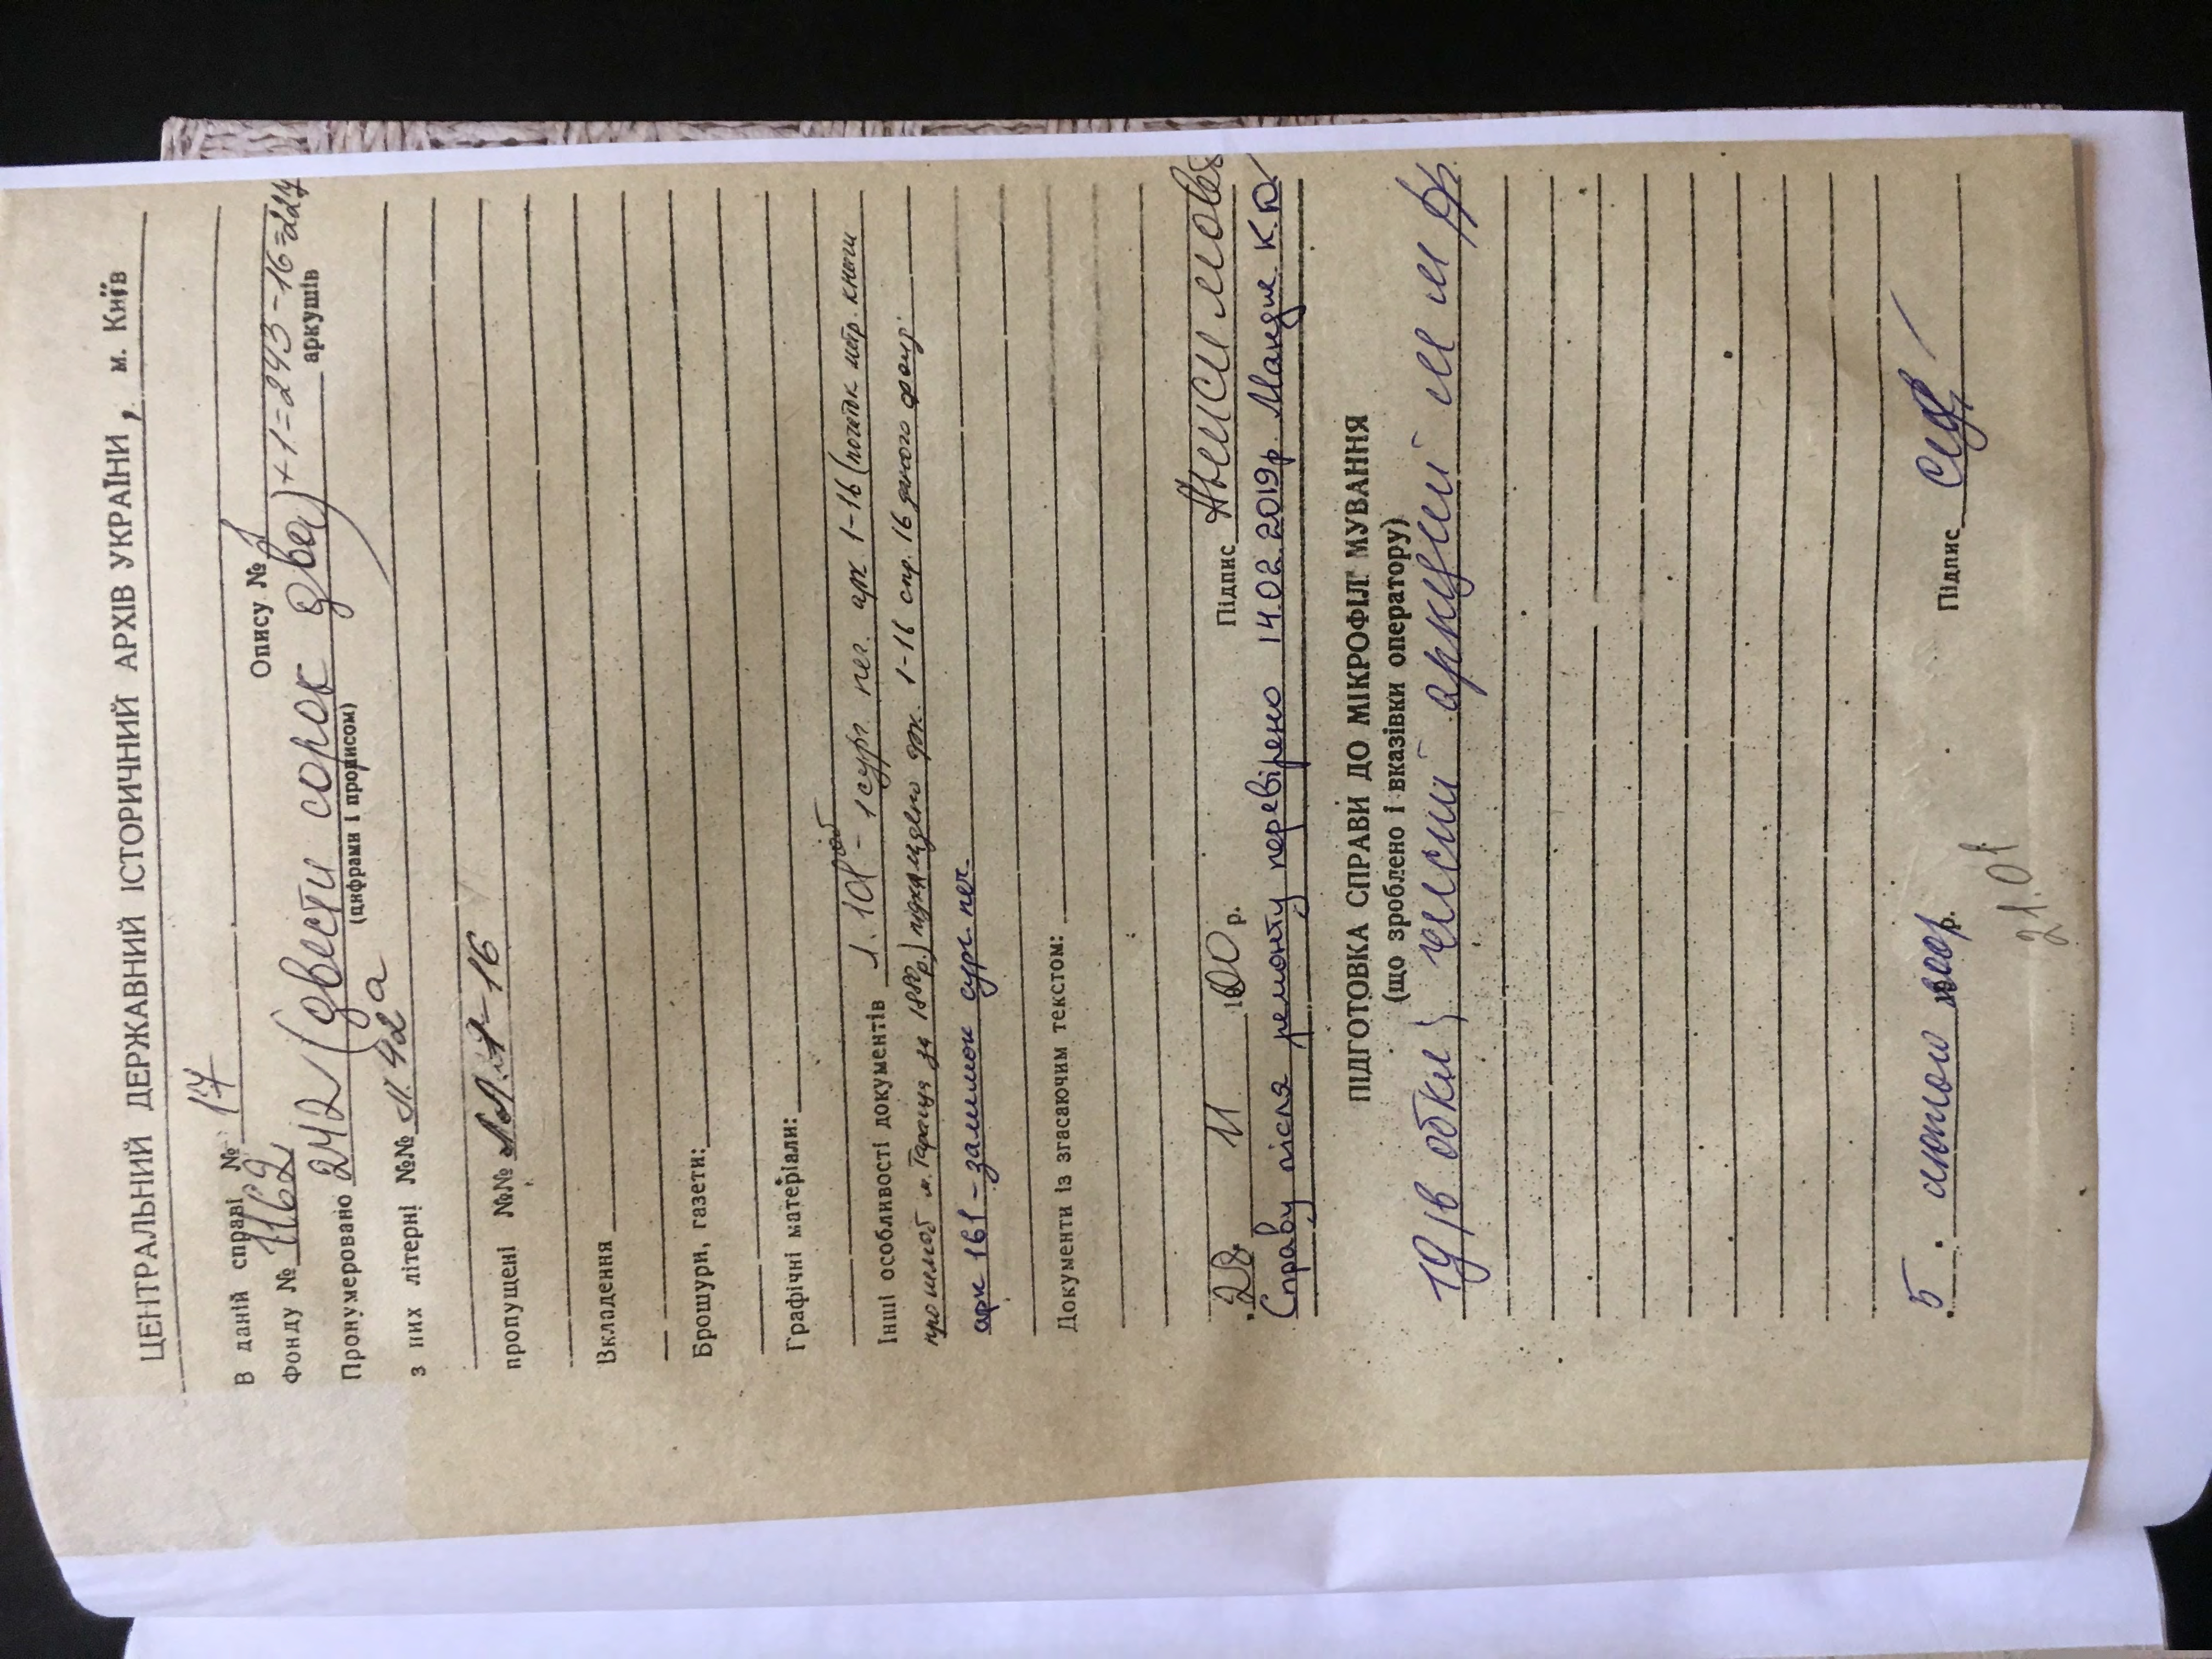 ЦЕНТРАЛЬНИЙ ДЕРЖАВНИЙ ІСТОРИЧНИЙ АРХІВ УКРАЇНИ, м. Київ
В даній справі № 17
Фонду № 1162 Опису № 1
Пронумеровано 242 (двести сорок два) +1=243-16=227 аркушів
(цифрами і прописом)
з них літерні №№ л. 42а
пропущені №№ л.л. 1-16
Вкладення
Брошури, газети:
Графічні матеріали:
Інші особливості документів л. 101 - 1 сург. печ. арк. 1-16 (початок метр. книги
про шлюб м. Тараща за 188 р.) підшивдено арк. 1-16 спр. 16 даного фонду.
арк 161 - залишок сург. печ.
Документи із згасаючим текстом:
"28" 11 00 р. Підпис
Справу після ремонту перевірено 14.02.2019р. К.О.
ПІДГОТОВКА СПРАВИ ДО МІКРОФІЛЬМУВАННЯ
(що зроблено і вказівки оператору)
чистий аркуш
"5" лютого р. Підпис
21.01